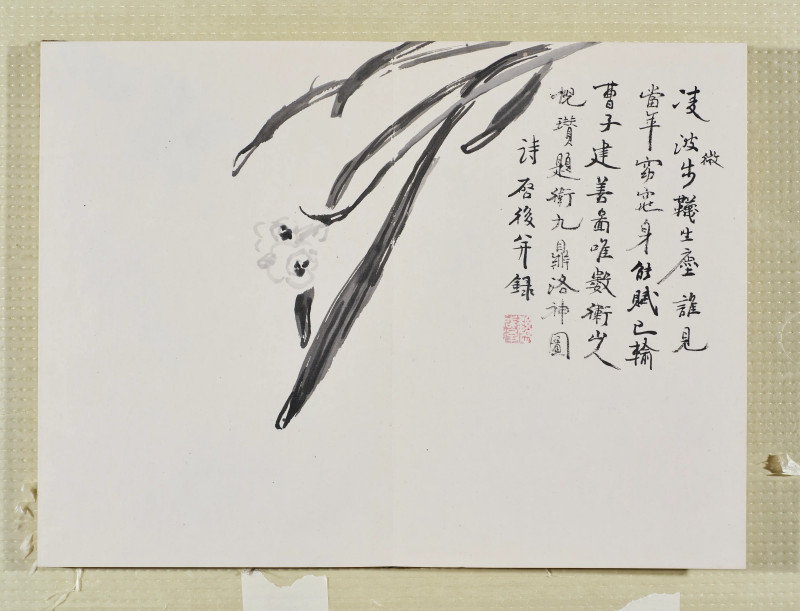 凌波微步韈生塵誰見
當年窈窕身能賦已輸
曹子建善啚唯數衛山人
倪瓚題衛九鼎洛神圖
詩启後并錄